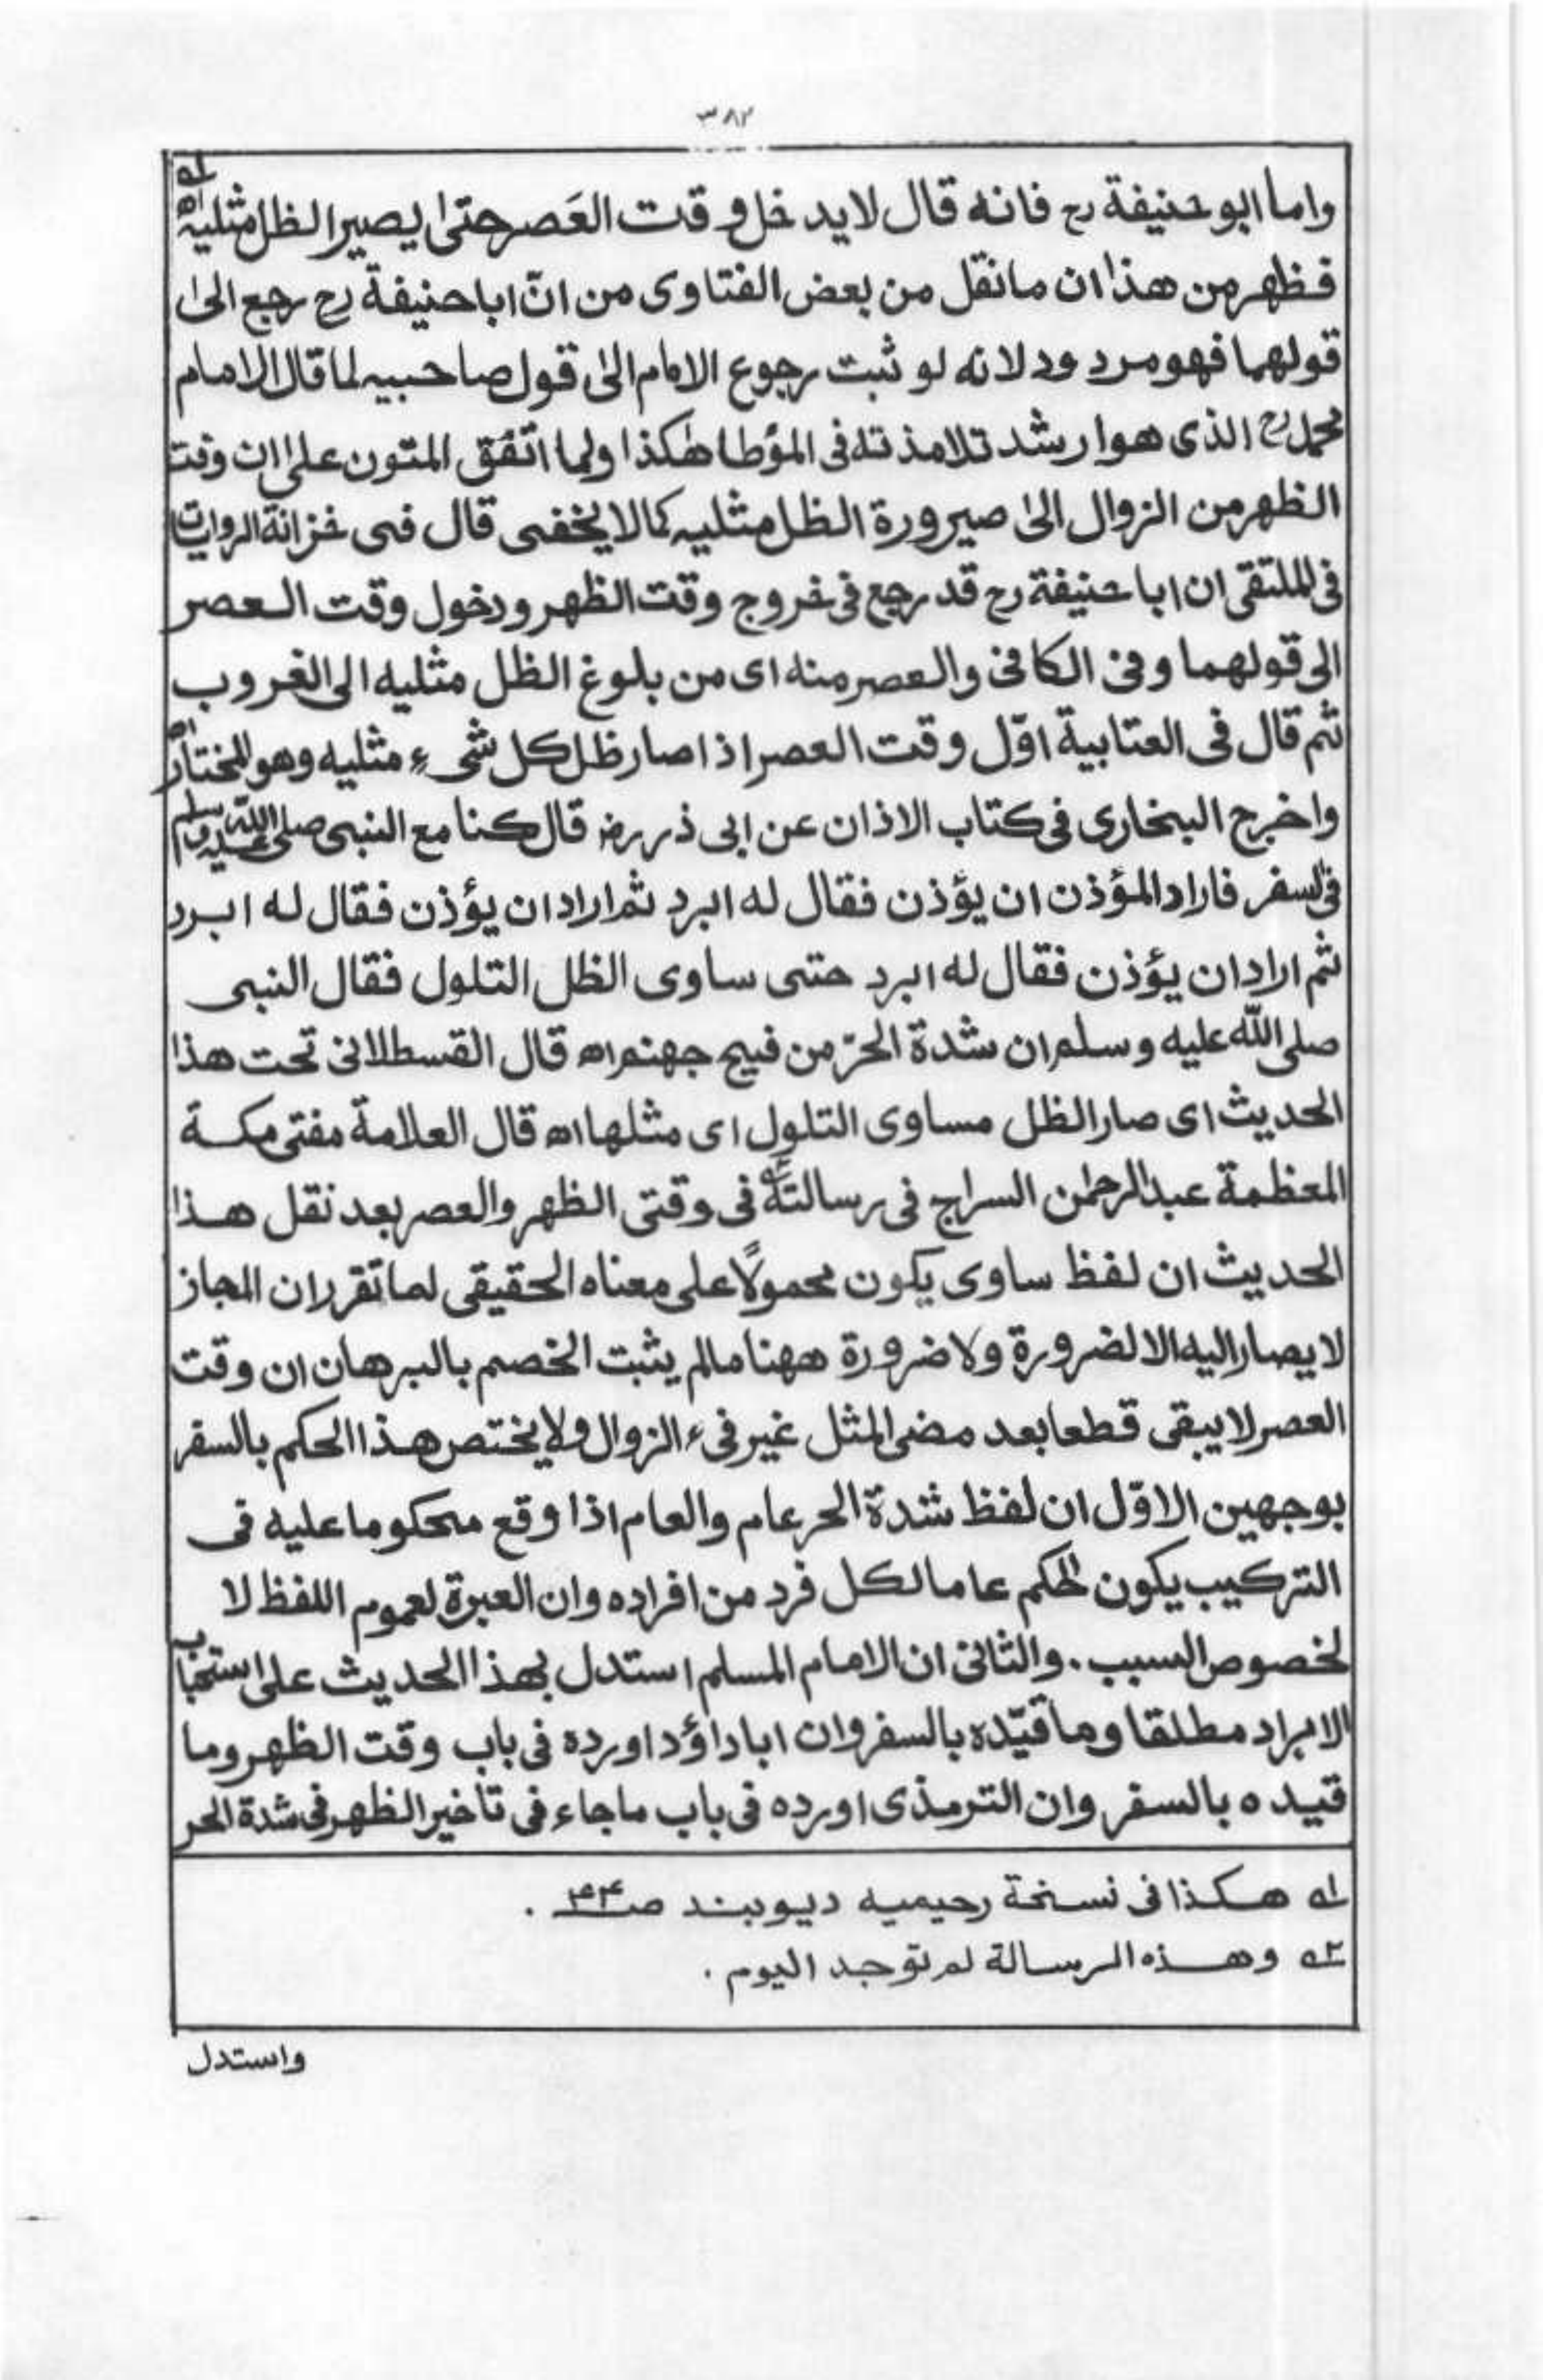 ٣٨٢
واما ابو حنيفة رح فانه قال لا يدخل وقت العَصر حتىٰ يصير الظل مثليه اه ١ه
فظهر من هذا ان ما نقل من بعض الفتاوى من انّ ابا حنيفة رح رجع الىٰ
قولهما فهو مردود لانه لو ثبت رجوع الامام الىٰ قول صاحبيه لما قال الامام
محمد رح الذى هو ارشد تلامذته فى المؤطا هٰكذا ولما اتفق المتون علىٰ ان وقت
الظهر من الزوال الىٰ صيرورة الظل مثليه كما لا يخفى قال فى خزانة الروايات
فى الملتقى ان ابا حنيفة رح قد رجع فى خروج وقت الظهر ودخول وقت العصر
الى قولهما وفى الكافى والعصر منه اى من بلوغ الظل مثليه الى الغروب
ثم قال فى العتابية اوّل وقت العصر اذا صار ظل كل شىء مثليه وهو المختار اه
واخرج البخارى فى كتاب الاذان عن ابى ذر رض قال كنا مع النبى صلى الله عليه وسلم
فى السفر فاراد المؤذن ان يؤذن فقال له ابرد ثم اراد ان يؤذن فقال له ابرد
ثم اراد ان يؤذن فقال له ابرد حتى ساوى الظل التلول فقال النبى
صلى الله عليه وسلم ان شدة الحرّ من فيح جهنم اه قال القسطلانى تحت هذا
الحديث اى صار الظل مساوى التلول اى مثلها اه قال العلامة مفتى مكة
المعظمة عبد الرحمٰن السراج فى رسالته ٢ه فى وقتى الظهر والعصر بعد نقل هذا
الحديث ان لفظ ساوى يكون محمولًا على معناه الحقيقى لما تقرر ان المجاز
لا يصار اليه الا لضرورة ولا ضرورة ههنا مالم يثبت الخصم بالبرهان ان وقت
العصر لا يبقى قطعا بعد مضى المثل غير فىء الزوال ولا يختص هذا الحكم بالسفر
بوجهين الاوّل ان لفظ شدة الحر عام والعام اذا وقع محكوما عليه فى
التركيب يكون الحكم عاما لكل فرد من افراده وان العبرة لعموم اللفظ لا
لخصوص السبب . والثانى ان الامام المسلم استدل بهذا الحديث علىٰ استحباب
الابراد مطلقا وما قيّده بالسفر وان ابا داؤد اورده فى باب وقت الظهر وما
قيده بالسفر وان الترمذى اورده فى باب ما جاء فى تاخير الظهر فى شدة الحر
١ه هكذا فى نسخة رحيميه ديوبند صـ .
٢ه وهذه الرسالة لم توجد اليوم .
واستدل